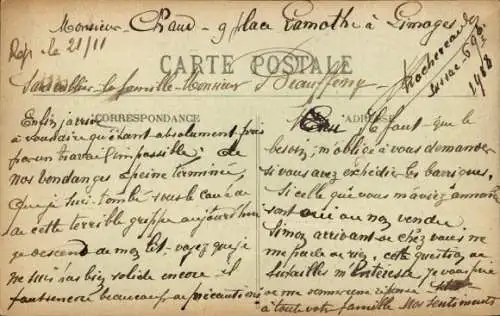 Monsieur Chaud - 9 place Lamothe à Limoges
Rép. le 21/11
CARTE POSTALE
la famille - Monsieur
CORRESPONDANCE
ADRESSE
Enfin j'arrive
à vous dire qu'étant absolument pris
par un travail impossible; de
nos vendanges à peine terminé,
que je suis tombé sous le coup de
cette terrible grippe aujourd'hui
je descend de mon lit - voyez que je
ne suis pas bien solide encore il
faut encore beaucoup de précautions
Il faut que le
besoin m'oblige à vous demander
si vous avez expédier les barriques,
si celle que vous m'aviez annoncé
sont oui ou non vendu
Sinon arrivant de chez vous ne
me parle de rien, cette question de
futailles m'intéresse je vous prie
de me donner une réponse
à toute votre famille Nos sentiments